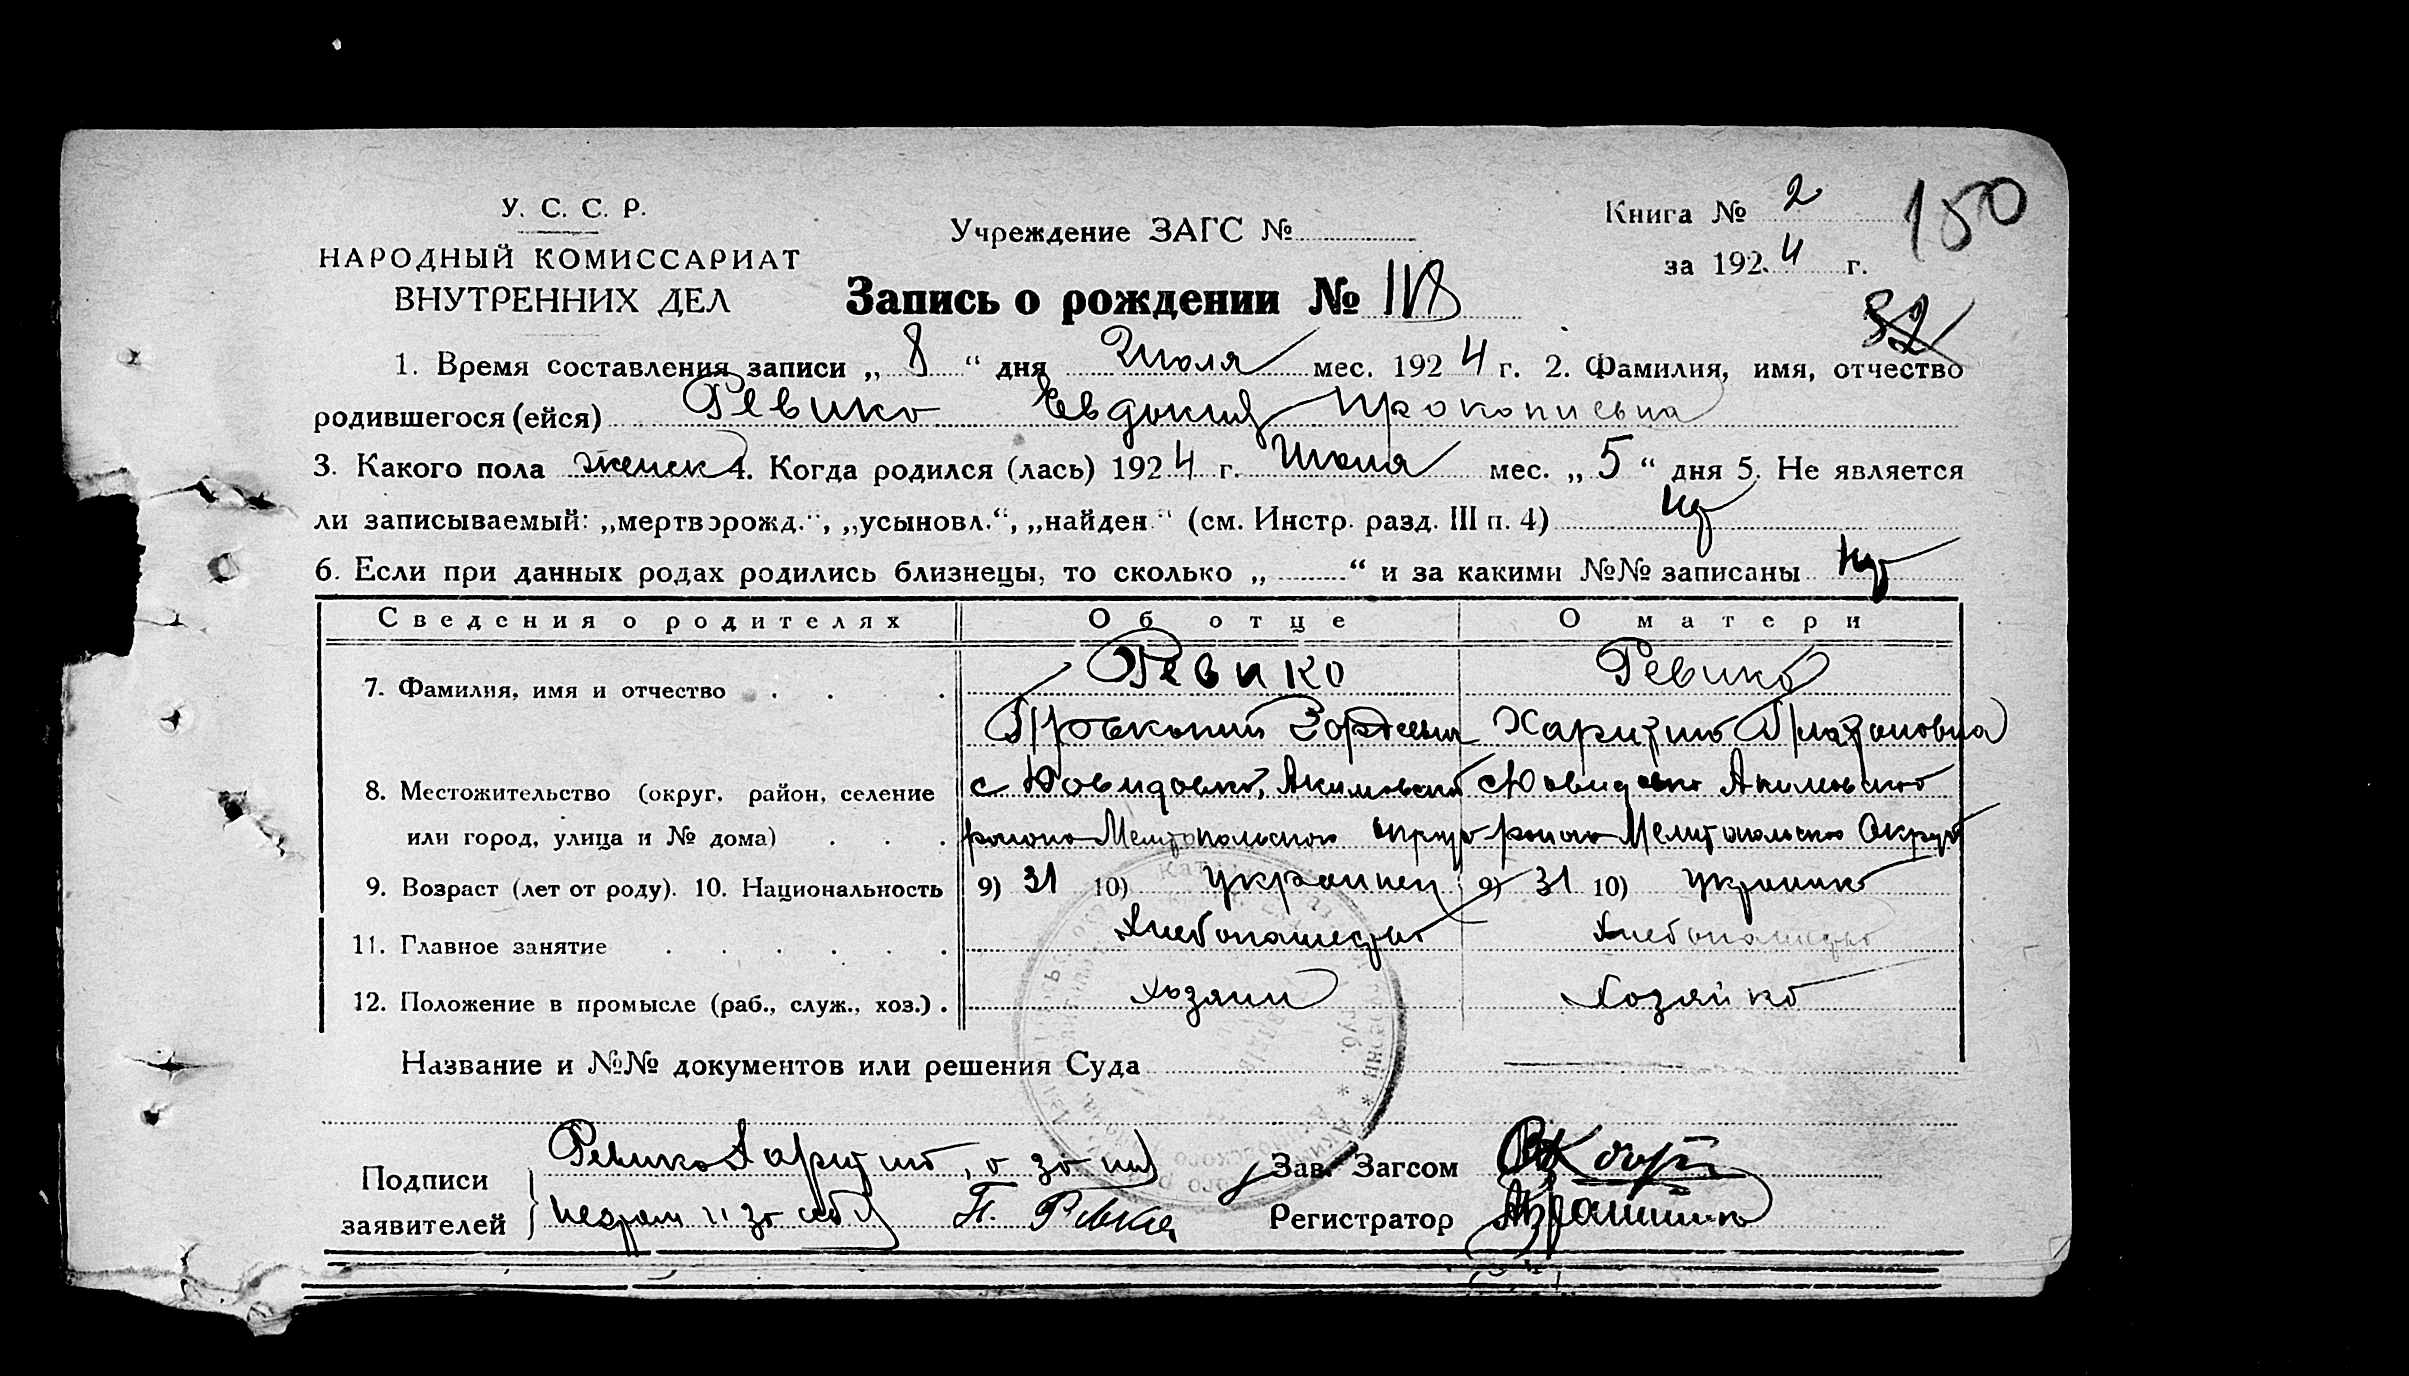 У. С. С. Р.
НАРОДНЫЙ КОМИССАРИАТ
ВНУТРЕННИХ ДЕЛ
Учреждение ЗАГС №
Книга № 2
150
за 1924 г.
Запись о рождении № 118
32
1. Время составления записи „8“ дня Июля мес. 1924 г. 2. Фамилия, имя, отчество
родившегося (ейся) Ревико Евдокия Прокопиевна
3. Какого пола женск 4. Когда родился (лась) 1924 г. Июля мес. „5“ дня 5. Не является
ли записываемый: „мертворожд.“, „усыновл.“, „найден.“ (см. Инстр. разд. III п. 4)
6. Если при данных родах родились близнецы, то сколько „ “ и за какими №№ записаны
Сведения о родителях Об отце О матери
7. Фамилия, имя и отчество Ревико Ревико
Прокопий Харитина Платоновна
8. Местожительство (округ, район, селение с Давидовка, Акимовско Давидовка Акимовского
или город, улица и № дома) района Мелитопольского округа района Мелитопольского Округа
9. Возраст (лет от роду). 10. Национальность 9) 31 10) украинец 9) 31 10) украинка
11. Главное занятие Хлебопашество Хлебопашество
12. Положение в промысле (раб., служ., хоз.) хозяин Хозяйка
Название и №№ документов или решения Суда
Подписи
заявителей
Ревико Харитина, а за
неграм П. Ревика
Зав. Загсом
Регистратор